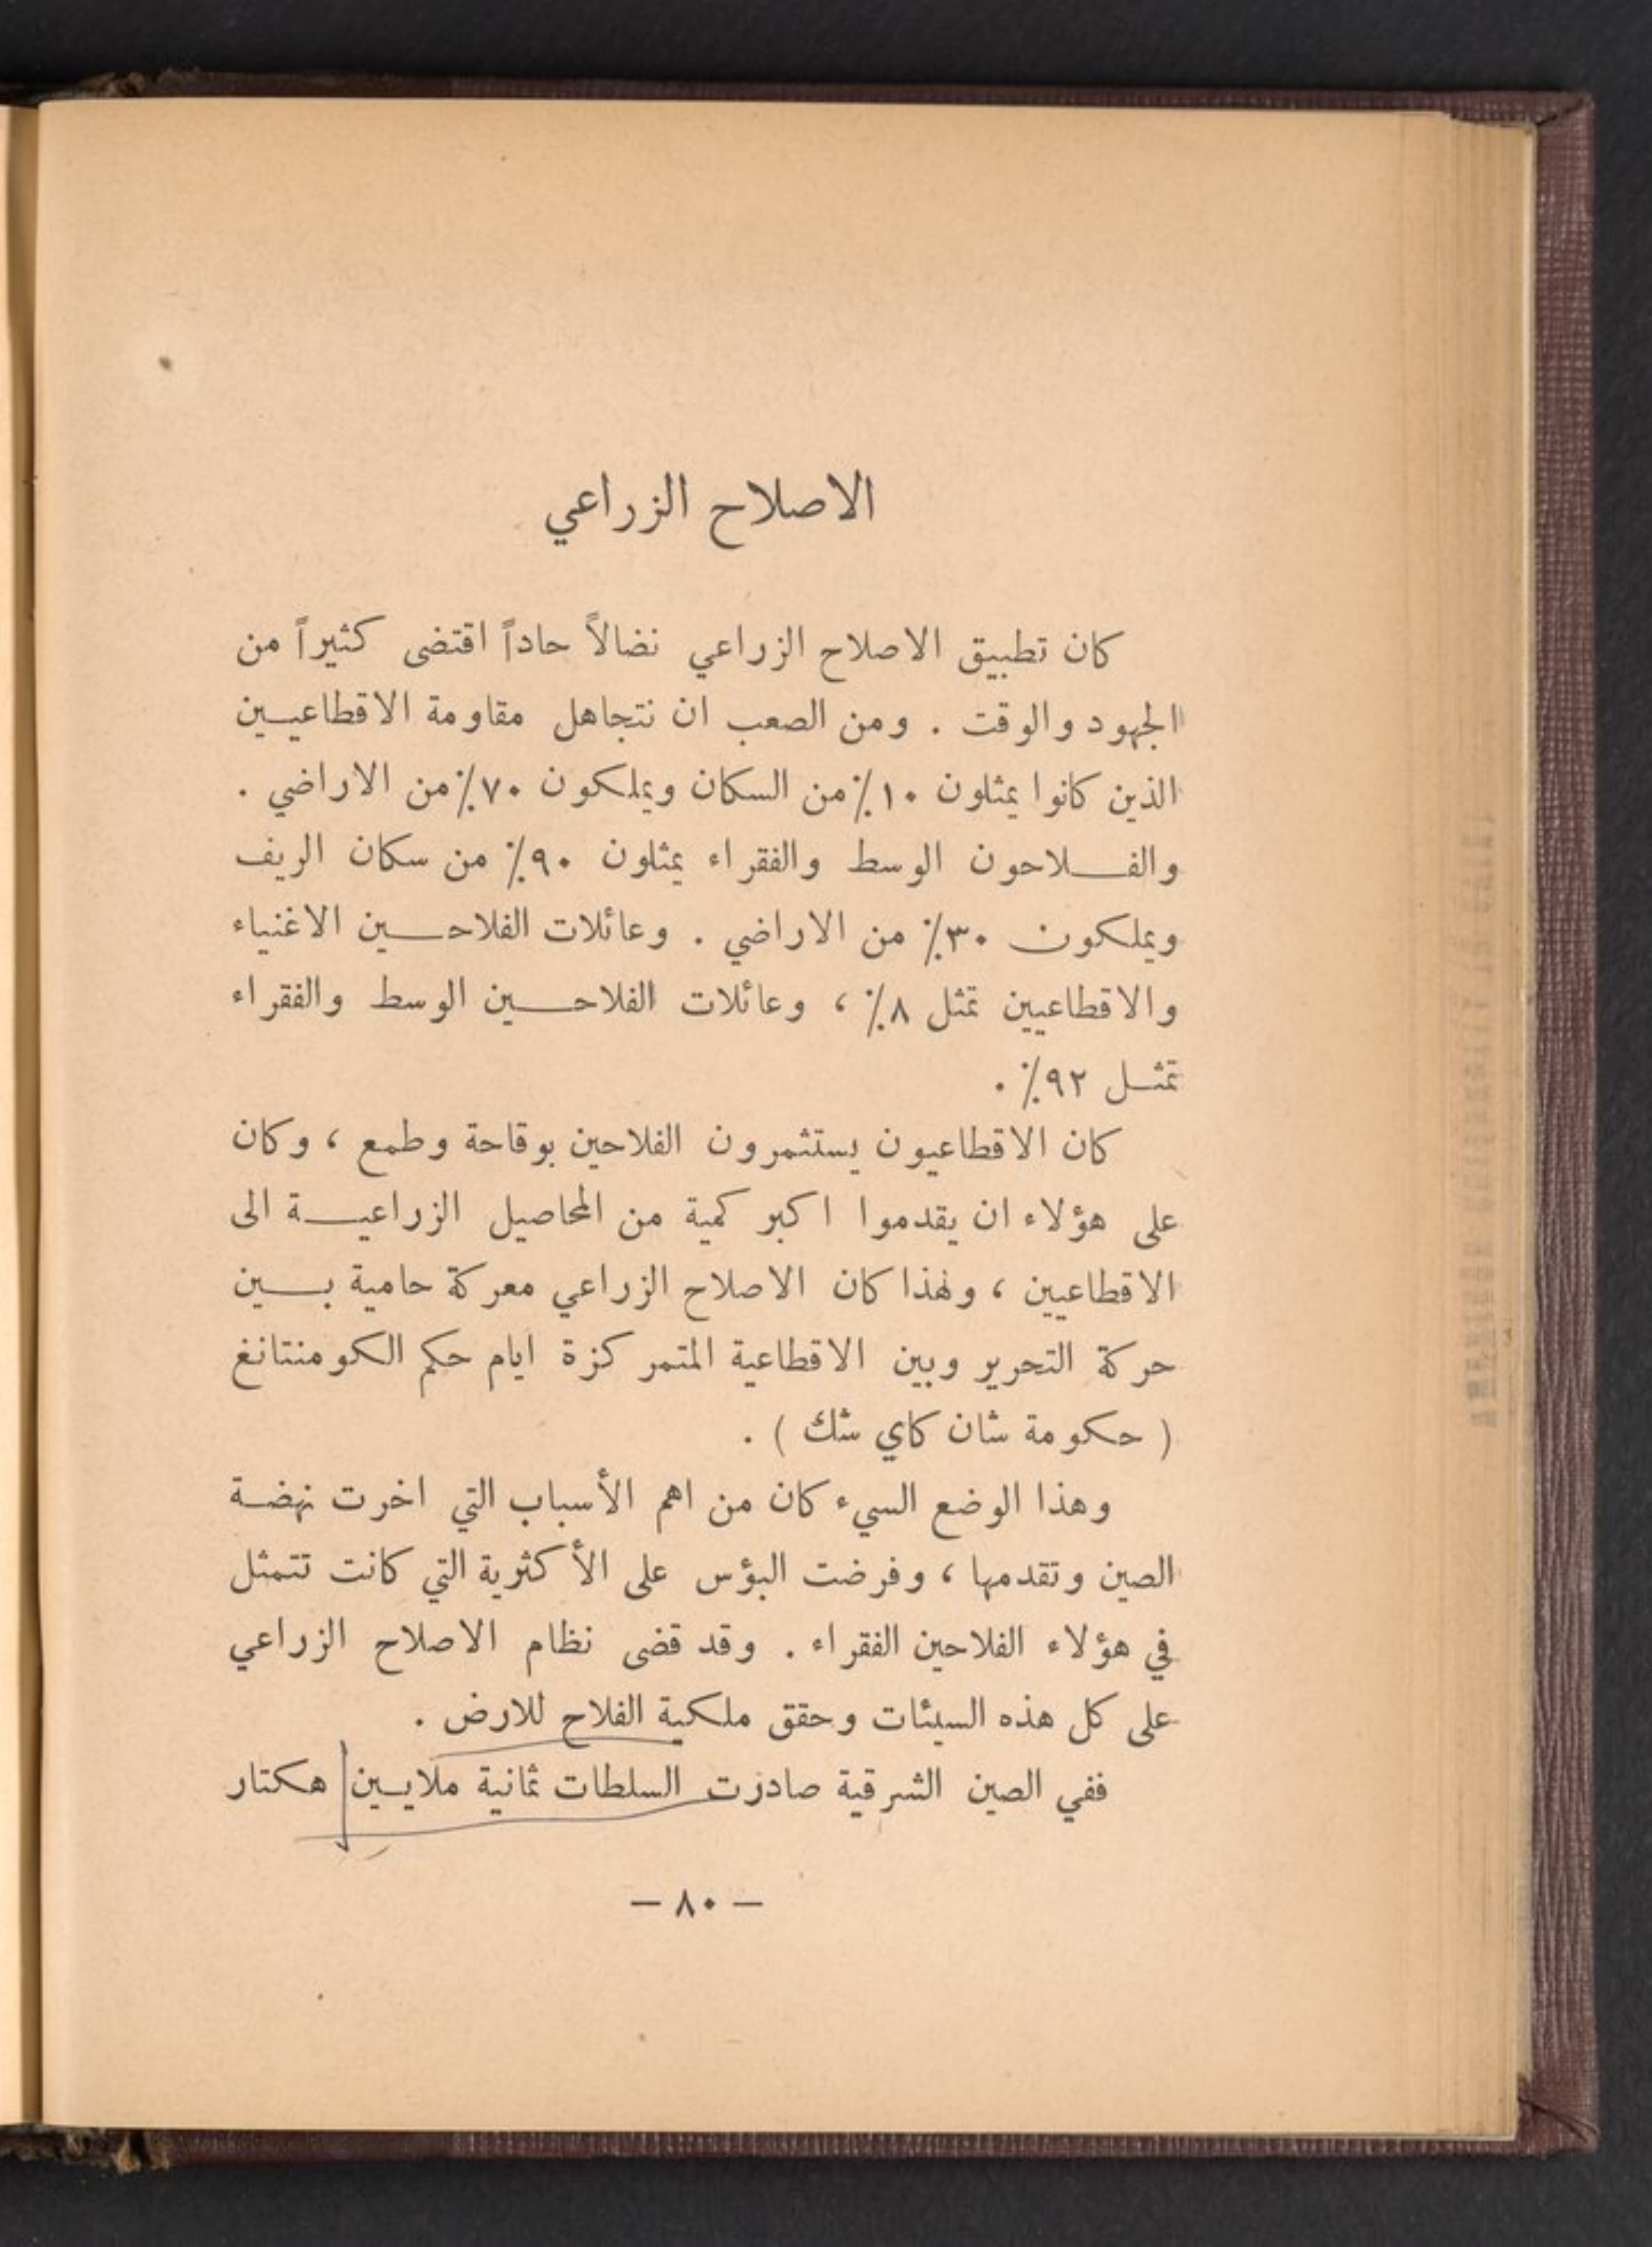 الاصلاح الزراعي
كان تطبيق الاصلاح الزراعي نضالاً حاداً اقتضى كثيراً من
الجهود والوقت . ومن الصعب ان نتجاهل مقاومة الاقطاعيين
الذين كانوا يمثلون ١٠٪ من السكان ويملكون ٧٠٪ من الاراضي .
والفلاحون الوسط والفقراء يمثلون ٩٠٪ من سكان الريف
ويملكون ٣٠٪ من الاراضي . وعائلات الفلاحين الاغنياء
والاقطاعيين تمثل ٨٪ ، وعائلات الفلاحين الوسط والفقراء
تمثل ٩٢٪ .
كان الاقطاعيون يستثمرون الفلاحين بوقاحة وطمع ، وكان
على هؤلاء ان يقدموا اكبر كمية من المحاصيل الزراعية الى
الاقطاعيين ، ولهذا كان الاصلاح الزراعي معركة حامية بين
حركة التحرير وبين الاقطاعية المتمركزة ايام حكم الكومنتانغ
( حكومة شان كاي شك ) .
وهذا الوضع السيء كان من اهم الأسباب التي اخرت نهضة
الصين وتقدمها ، وفرضت البؤس على الأكثرية التي كانت تتمثل
في هؤلاء الفلاحين الفقراء . وقد قضى نظام الاصلاح الزراعي
على كل هذه السيئات وحقق ملكية الفلاح للارض .
ففي الصين الشرقية صادرت السلطات ثمانية ملايين هكتار
— ٨٠ —